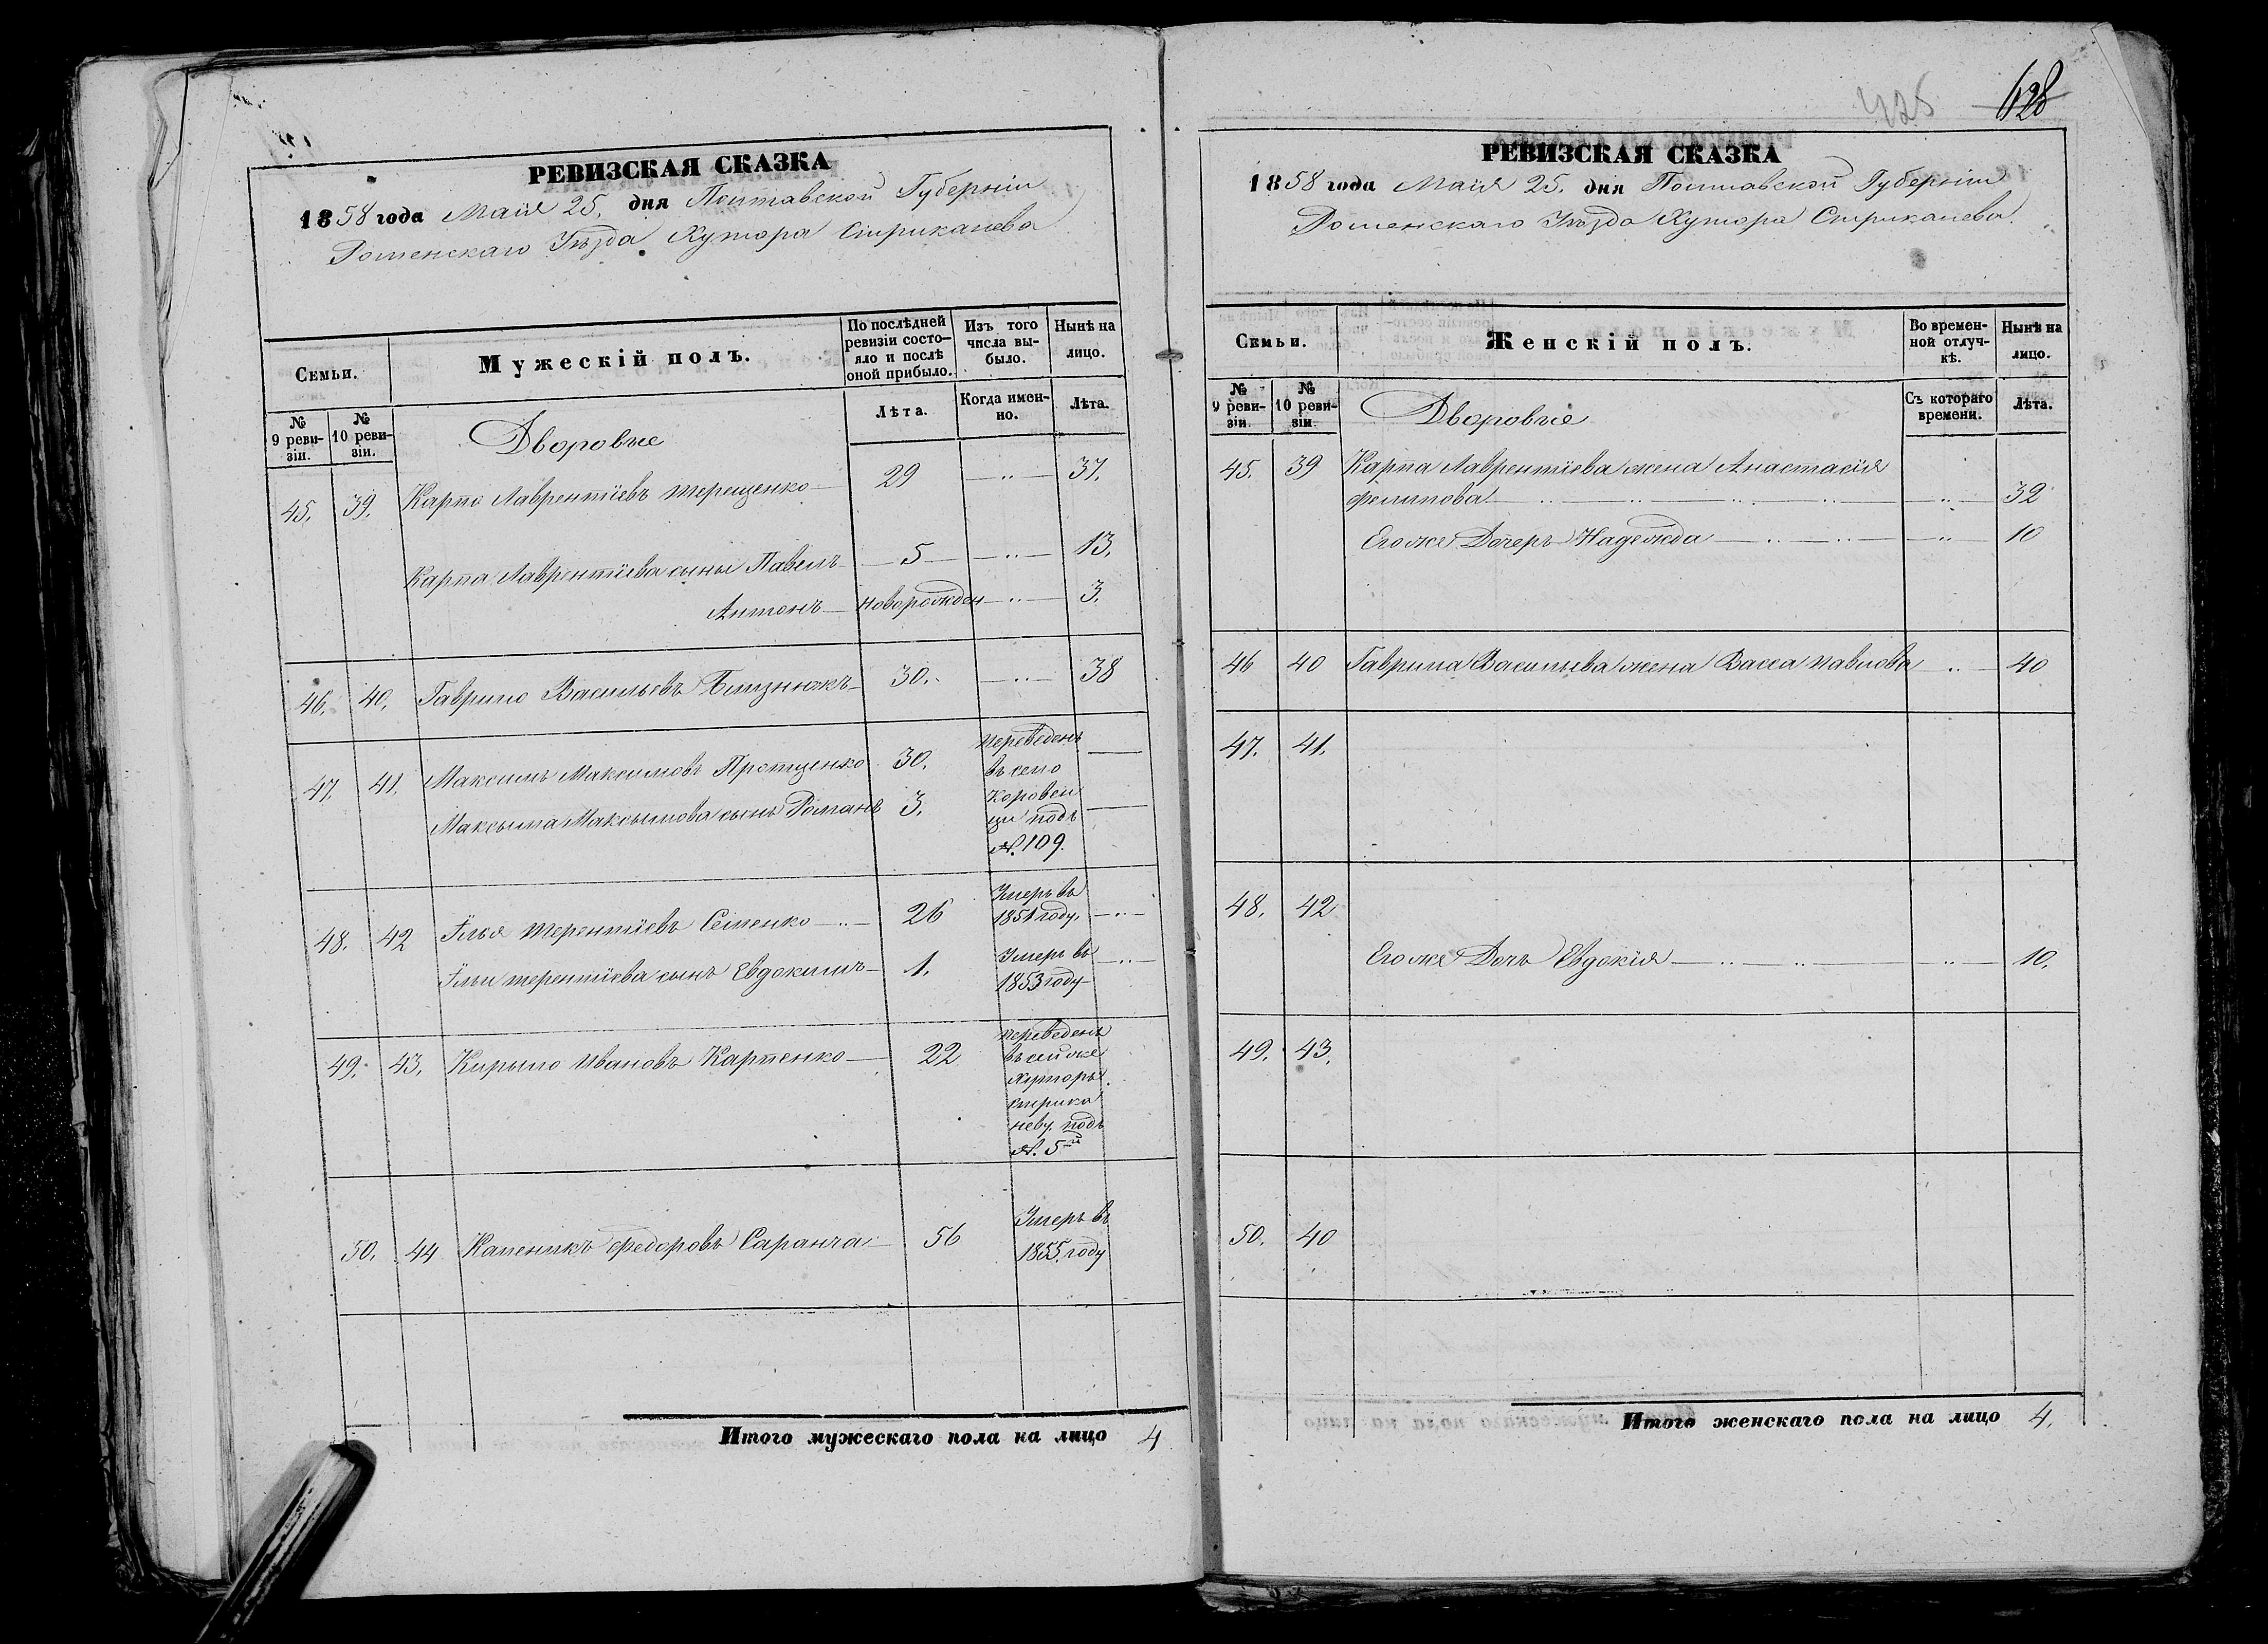 РЕВИЗСКАЯ СКАЗКА
1858 года Маія 25. дня Полтавской Губерніи
Роменскаго Уѣзда Хутора Стрикачева
Семьи.
Мужескій полъ.
По послѣдней ревизіи состо-
яло и послѣ
оной прибыло.
Изъ того
числа вы-
было.
Нынѣ на
лицо.
№
9 реви-
зіи.
№
10 реви-
зіи.
Лѣта.
Когда имен-
но.
Лѣта.
Дворовые
45. 39. Карпо Лаврентіевъ Терещенко 29 37.
Карпа Лаврентіева сыны Павелъ 5 13.
Антонъ новорожден 3.
46. 40. Гаврило Васильевъ Близнюкъ 30. 38
47. 41. Максимъ Максимовъ Протценко 30. переведенъ
въ село
Максыма Максымова сынъ Романъ 3. Коровен
ци подъ
№. 109.
48. 42 Илья Терентіевъ Семенко 26 Умеръ въ
1851 году.
Ильи терентіева сынъ Евдокимъ 1. Умеръ въ
1853 году
49. 43. Кирыло Ивановъ Карпенко 22 переведенъ
въ сей же
Хуторъ
подъ
№. 5й
50. 44 Каленикъ Федоровъ Саранча 56 Умеръ въ
1855. году
Итого мужескаго пола на лицо 4
128
РЕВИЗСКАЯ СКАЗКА
1858 года Маія 25. дня Полтавской Губерніи
Роменскаго Уѣзда Хутора Стрикачева.
Семьи.
Женскій полъ.
Во времен-
ной отлуч-
кѣ.
Нынѣ на
лицо.
№
9 реви-
зіи.
№
10 реви-
зіи.
Съ котораго
времени.
Лѣта.
Дворовые
45. 39 Карпа Лаврентіева жена Анастасія
Филипова 32
Его же Дочеръ Надежда 10
46 40 Гаврила Васильева жена Васса Павлова 40
47. 41.
48. 42
Его же Дочь Евдокія 10.
49. 43.
50. 40
Итого женскаго пола на лицо 4.